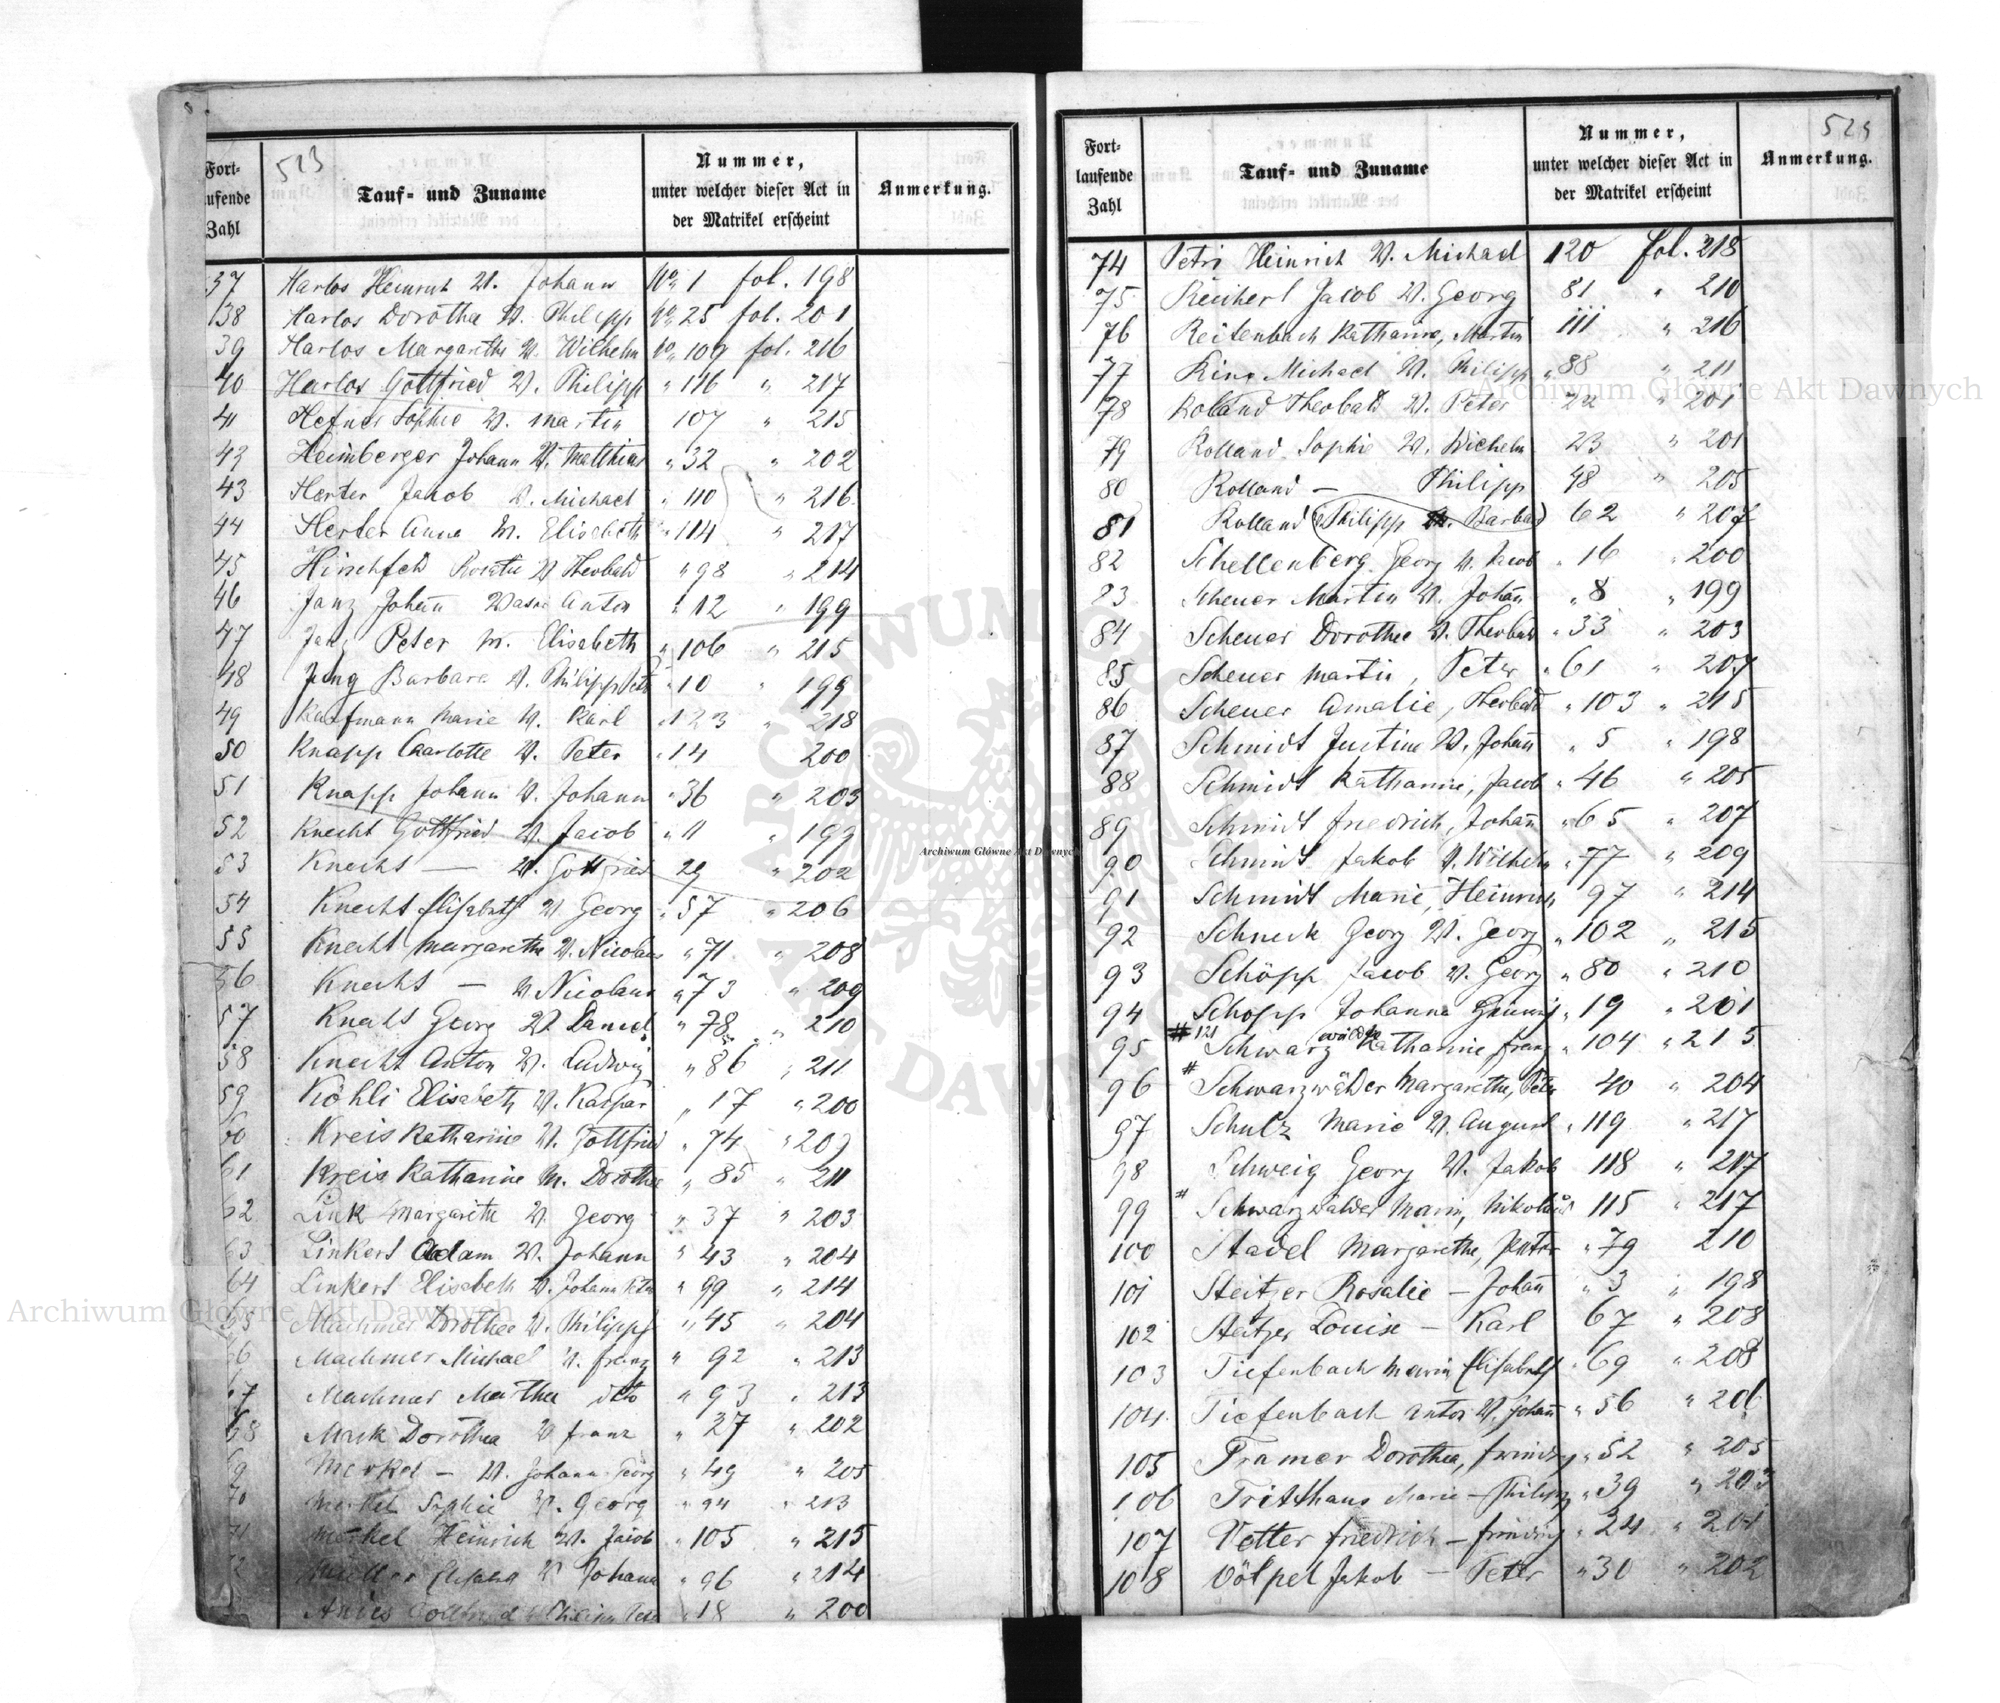 523
Fort-
laufende
Zahl
Tauf- und Zuname
Nummer,
unter welcher dieser Act in
der Matrikel erscheint
Anmerkung.
37 Harlos Heinrich V. Johann No 1 fol. 198
38 Harlos Dorothea V. Philipp No 25 fol. 201
39 Harlos Margaretha V. Wilhelm No 109 fol. 216
40 Harlos Gottfried V. Philipp " 116 " 217
41 Hefner Sophie V. Martin 107 " 215
42 Heimberger Johann V. Matthias " 32 " 202
43 Herter Jakob V. Michael " 110 " 216
44 Herter Anna M. Elisabeth " 114 " 217
45 Hirschfeld V Theobald " 98 " 214
46 Janz Johann Anton " 12 " 199
47 Janz Peter M. Elisabeth " 106 " 215
48 Jung Barbara V. Philipp Peter " 10 " 199
49 Kaufmann Marie V. Karl " 123 " 218
50 Knapp Charlotte V. Peter " 14 200
51 Knapp Johann V. Johann " 36 " 203
52 Knecht Gottfried V. Jacob " 11 " 199
53 Knecht — V. Gottfried 29 " 202
54 Knecht Elisabeth V. Georg " 57 " 206
55 Knecht Margaretha V. Nicolaus " 71 " 208
56 Knecht — V Nicolaus " 73 " 209
57 Knecht Georg V Daniel " 78 " 210
58 Knecht Anton V. Ludwig " 86 " 211
59 Köhli Elisabeth V. Kaspar " 17 " 200
60 Kreis Katharine V. Gottfried " 74 " 209
61 Kreis Katharine M. Dorothea " 85 " 211
62 Link Margarethe V. Georg " 37 " 203
63 Linkert Adam V. Johann " 43 " 204
64 Linkert Elisabeth V. Johann Peter " 99 " 214
65 Machmer Dorothea V. Philipp " 45 " 204
66 Machmer Michael V. Franz " 92 " 213
67 Machmer Martha dto " 93 " 213
68 Mack Dorothea V Franz " 27 " 202
69 Merkel — V. Johann Georg " 49 " 205
70 Merkel Sophie V. Georg " 94 " 213
71 Merkel Heinrich V. Jacob " 105 " 215
72 Müller Elisabeth V Johann " 96 " 214
Philipp Peter " 18 " 200
Fort-
laufende
Zahl
Tauf- und Zuname
Nummer,
unter welcher dieser Act in
der Matrikel erscheint
Anmerkung.
74 Petri Heinrich V. Michael 120 fol. 218
75 Reichert Jacob V. Georg 81 " 210
76 Reitenbach Katharina, Martin 111 " 216
77 Ring Michael V. Philipp " 88 " 211
78 Roland Theobald V. Peter 22 " 201
79 Rolland Sophie V. Wilhelm 23 " 201
80 Rolland — Philipp 48 " 205
81 Rolland (Philipp M. Barbara) 62 " 207
82 Schellenberg Georg V. Jacob " 16 " 200
23 Scheuer Martin V. Johann " 8 " 199
84 Scheuer Dorothee V. Theobald " 33 " 203
85 Scheuer Martin, Peter " 61 " 207
86 Scheuer Amalie, Theobald " 103 " 215
87 Schmidt Justine V. Johann " 5 " 198
88 Schmidt Katharine, Jacob " 46 " 205
89 Schmidt Friedrich, Johann " 65 " 207
90 Schmidt Jakob V. Wilhelm " 77 " 209
91 Schmidt Marie, Heinrich 97 " 214
92 Schneck Georg V. Georg " 102 " 215
93 Schöpp Jacob V. Georg " 80 " 210
94 Schöpp Johanna " 19 " 201
# 121
95 Schwarzwälder Katharine Franz " 104 " 215
96 # Schwarzwälder Margarethe, Peter 40 " 204
97 Schulz Marie V. August " 119 " 217
98 Schweig Georg V. Jakob 118 " 217
99 # Schwarzwälder Marie, Nikolaus 115 " 217
100 Stadel Margarethe, Peter " 79 210
101 Steitzer Rosalie — Johann " 3 " 198
102 Steitzer Louise — Karl 67 " 208
103 Tiefenbach Maria Elisabeth " 69 " 208
104 Tiefenbach Anton V. Johann " 56 " 206
105 Tramer Dorothea, Friedrich " 52 " 205
106 Tritthaus Marie — Philipp " 39 " 203
107 Vetter Friedrich — Friedrich " 24 " 201
108 Völpel Jakob — Peter " 30 " 202
Archiwum Główne Akt Dawnych
Archiwum Główne Akt Dawnych
Archiwum Główne Akt Dawnych